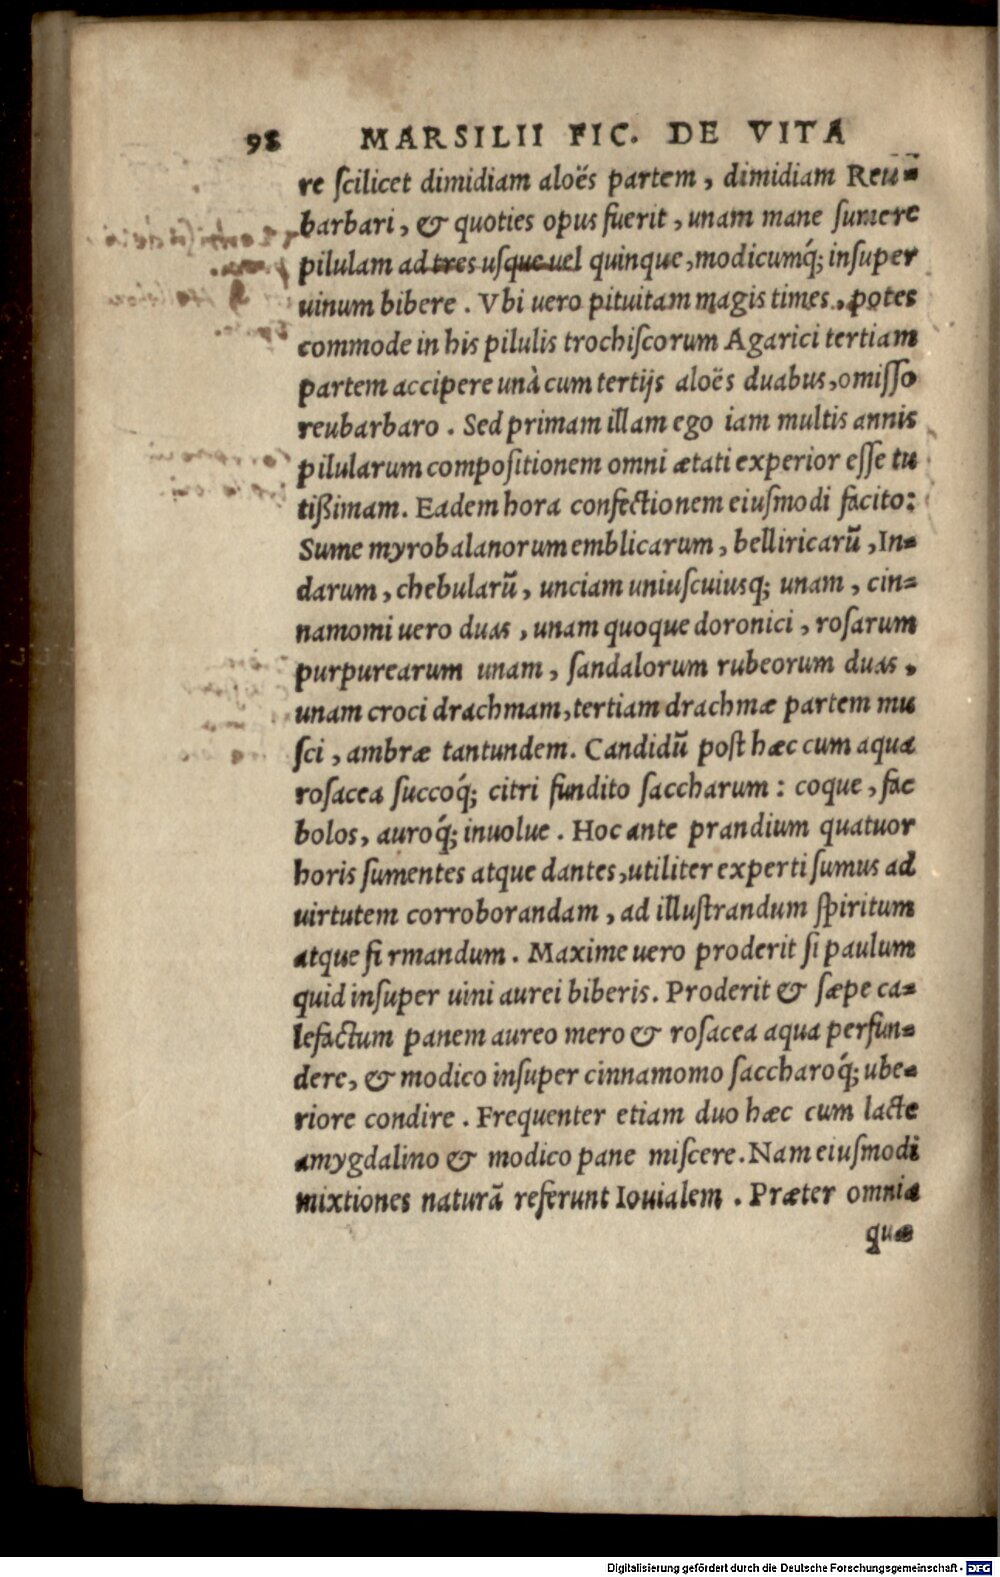 98 MARSILII FIC. DE VITA
re ſcilicet dimidiam aloës partem, dimidiam Reu-
barbari, & quoties opus fuerit, unam mane ſumere
pilulam ad tres uſque uel quinque, modicumq́; inſuper
uinum bibere. Vbi uero pituitam magis times, potes
commode in his pilulis trochiſcorum Agarici tertiam
partem accipere unà cum tertijs aloës duabus, omiſſo
reubarbaro. Sed primam illam ego iam multis annis
pilularum compoſitionem omni ætati experior eſſe tu
tißimam. Eadem hora confectionem eiuſmodi facito:
Sume myrobalanorum emblicarum, belliricarũ, In-
darum, chebularũ, unciam uniuſcuiusq; unam, cin-
namomi uero duas, unam quoque doronici, roſarum
purpurearum unam, ſandalorum rubeorum duas,
unam croci drachmam, tertiam drachmæ partem mu
ſci, ambræ tantundem. Candidũ poſt hæc cum aqua
roſacea ſuccoq́; citri fundito ſaccharum: coque, fac
bolos, auroq́; inuolue. Hoc ante prandium quatuor
horis ſumentes atque dantes, utiliter experti ſumus ad
uirtutem corroborandam, ad illuſtrandum ſpiritum
atque firmandum. Maxime uero proderit ſi paulum
quid inſuper uini aurei biberis. Proderit & ſæpe ca-
lefactum panem aureo mero & roſacea aqua perfun-
dere, & modico inſuper cinnamomo ſaccharoq́; ube-
riore condire. Frequenter etiam duo hæc cum lacte
amygdalino & modico pane miſcere. Nam eiuſmodi
mixtiones naturã referunt Iouialem. Præter omnia
quæ
Digitalisierung gefördert durch die Deutsche Forschungsgemeinschaft - DFG